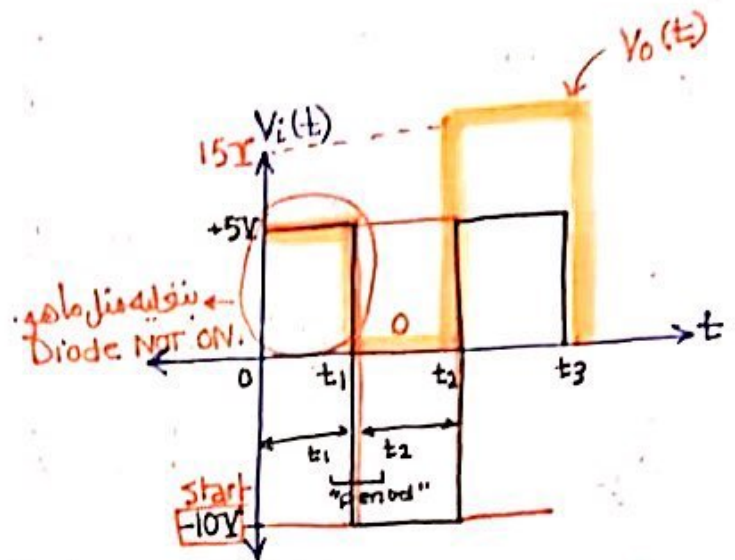 Vo(t)
Vi(t)
15V
+5V
بنخليه مثل ما هو.
Diode NOT ON.
0
0
t1
t2
t3
t
t1
t2
"period"
start
-10V